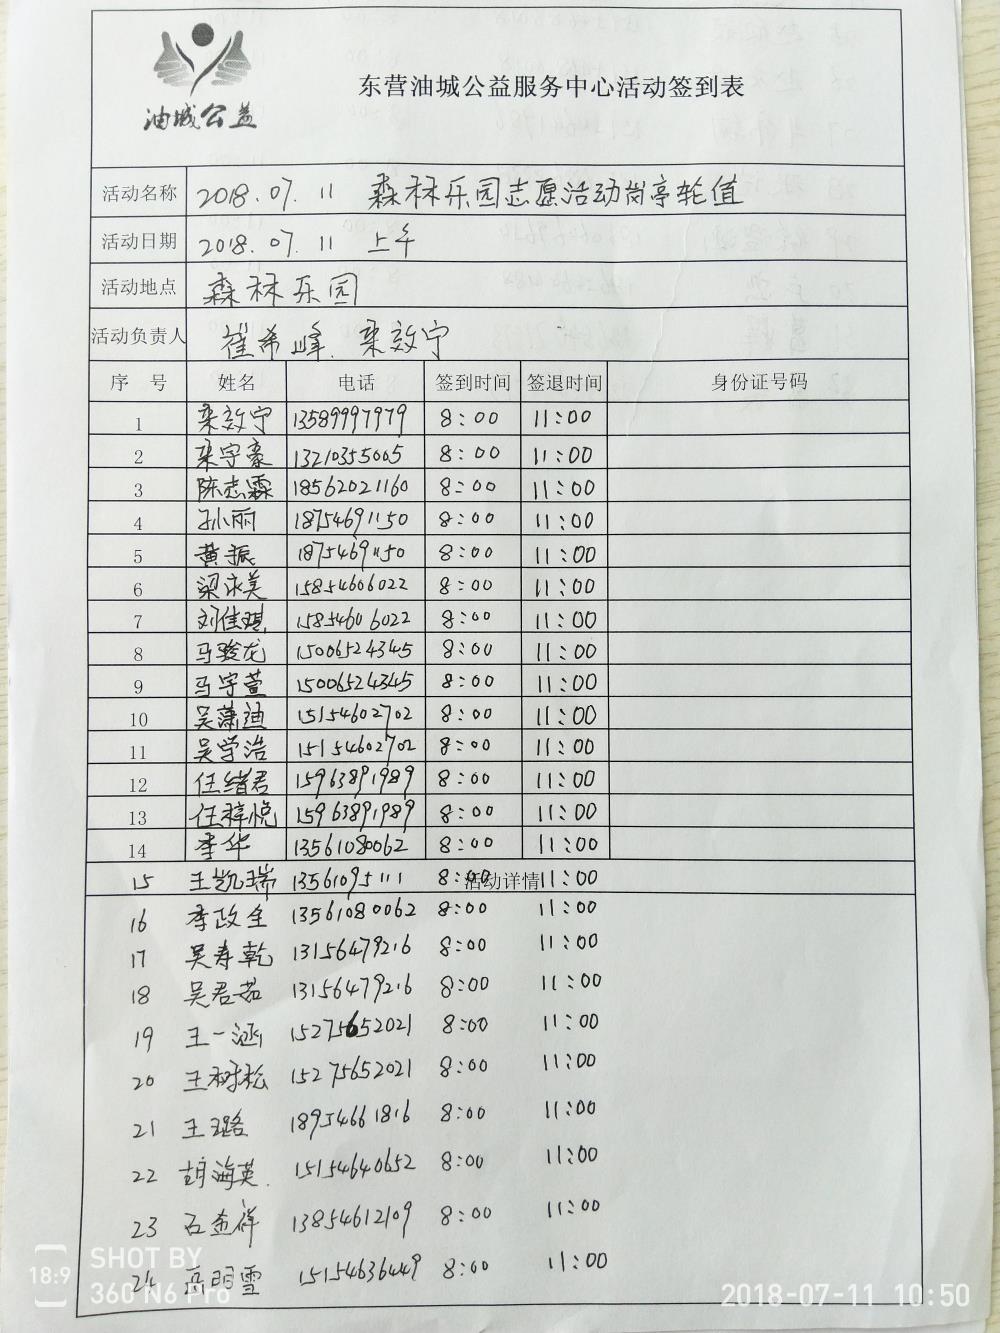 油城公益
东营油城公益服务中心活动签到表
活动名称 2018.07.11 森林乐园志愿活动岗亭轮值
活动日期 2018.07.11 上午
活动地点 森林乐园
活动负责人 崔希峰、栾效宁
序 号 姓名 电话 签到时间 签退时间 身份证号码
1 栾效宁 13589997979 8:00 11:00
2 栾宇豪 13210355005 8:00 11:00
3 陈志霖 18562021160 8:00 11:00
4 孙丽 18754691150 8:00 11:00
5 黄振 18754691150 8:00 11:00
6 梁永美 15854606022 8:00 11:00
7 刘佳琪 15854606022 8:00 11:00
8 马骏龙 15006524345 8:00 11:00
9 马宇萱 15006524345 8:00 11:00
10 吴潇迪 15154602702 8:00 11:00
11 吴学浩 15154602702 8:00 11:00
12 任绪君 15963891989 8:00 11:00
13 任梓悦 15963891989 8:00 11:00
14 李华 13561080062 8:00 11:00
15 王凯瑞 13561095111 8:00 活动详情 11:00
16 李政全 13561080062 8:00 11:00
17 吴寿乾 13156479216 8:00 11:00
18 吴君茹 13156479216 8:00 11:00
19 王一涵 15275652021 8:00 11:00
20 王树松 15275652021 8:00 11:00
21 王璐 18954661816 8:00 11:00
22 胡海英 15154640652 8:00 11:00
23 石金祥 13854612109 8:00 11:00
24 岳明雪 15154636449 8:00 11:00
18:9 SHOT BY
360 N6 Pro
2018-07-11 10:50